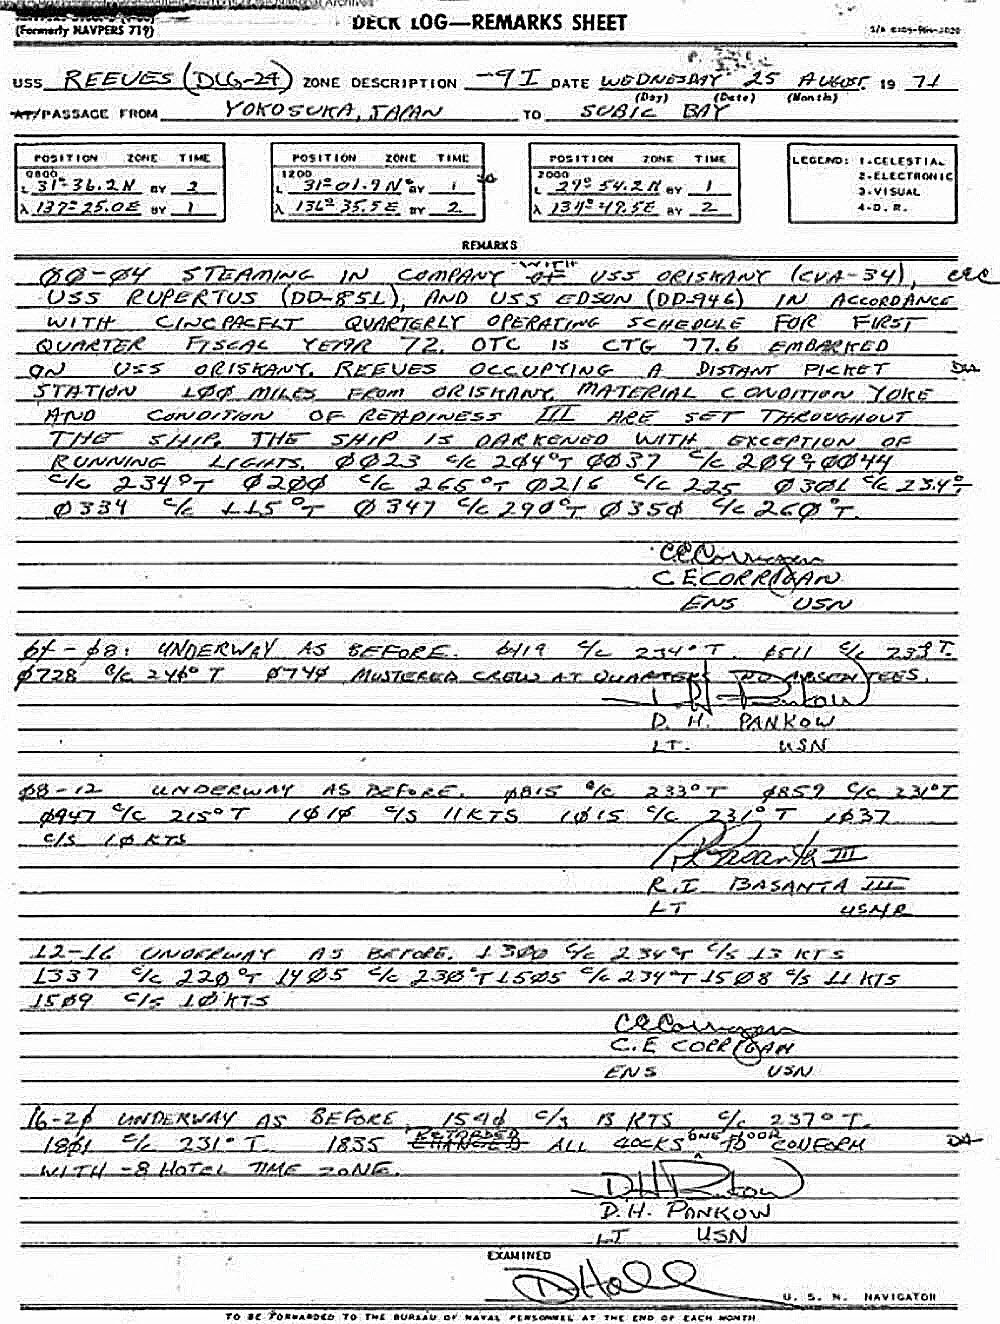 (Formerly NAVPERS 719)
DECK LOG—REMARKS SHEET
USS REEVES (DLG-24) ZONE DESCRIPTION -9I DATE WEDNESDAY 25 AUGUST 19 71
(Day) (Date) (Month)
AT/PASSAGE FROM YOKOSUKA, JAPAN TO SUBIC BAY
POSITION ZONE TIME
0800
L 31°-36.2N BY 2
λ 137°25.0E BY 1
POSITION ZONE TIME
1200
L 31°-01.9N BY 1
λ 136°35.5E BY 2
POSITION ZONE TIME
2000
L 29° 54.2N BY 1
λ 134°49.5E BY 2
LEGEND: 1-CELESTIAL
2-ELECTRONIC
3-VISUAL
4-D. R.
REMARKS
ØØ-Ø4 STEAMING IN COMPANY WITH USS ORISKANY (CVA-34), CEC
USS RUPERTUS (DD-851), AND USS EDSON (DD-946) IN ACCORDANCE
WITH CINCPACFLT QUARTERLY OPERATING SCHEDULE FOR FIRST
QUARTER FISCAL YEAR 72. OTC IS CTG 77.6 EMBARKED
ON USS ORISKANY. REEVES OCCUPYING A DISTANT PICKET
STATION 1ØØ MILES FROM ORISKANY. MATERIAL CONDITION YOKE
AND CONDITION OF READINESS III ARE SET THROUGHOUT
THE SHIP. THE SHIP IS DARKENED WITH EXCEPTION OF
RUNNING LIGHTS. ØØ23 C/C 204°T ØØ37 C/C 209° ØØ44
C/C 234°T Ø2ØØ C/C 265°T Ø216 C/C 225 Ø3Ø1 C/C 234°T
Ø334 C/C 115°T Ø347 C/C 29Ø°T Ø35Ø C/C 26Ø°T.
C E CORRIGAN
ENS USN
Ø4-Ø8: UNDERWAY AS BEFORE. Ø419 C/C 234°T. Ø511 C/C 233°T.
Ø728 C/C 24Ø°T Ø74Ø MUSTERED CREW AT QUARTERS NO ABSENTEES.
D. H. PANKOW
LT. USN
Ø8-12 UNDERWAY AS BEFORE. Ø815 C/C 233°T Ø859 C/C 231°T
Ø947 C/C 215°T 1Ø1Ø C/S 11KTS 1Ø15 C/C 231°T 1Ø37
C/S 1Ø KTS
R. I BASANTA III
LT USNR
12-16 UNDERWAY AS BEFORE. 13ØØ C/C 234°T C/S 13 KTS
1337 C/C 22Ø°T 14Ø5 C/C 23Ø°T 15Ø5 C/C 234°T 15Ø8 C/S 11 KTS
15Ø9 C/S 1Ø KTS
C. E CORRIGAN
ENS USN
16-2Ø UNDERWAY AS BEFORE. 154Ø C/S 13 KTS C/C 237°T.
18Ø1 C/C 231°T. 1835 RETARDED ALL CLOCKS ONE HOUR TO CONFORM
WITH -8 HOTEL TIME ZONE.
D. H. PANKOW
LT USN
EXAMINED
D Hall
U. S. N. NAVIGATOR
TO BE FORWARDED TO THE BUREAU OF NAVAL PERSONNEL AT THE END OF EACH MONTH